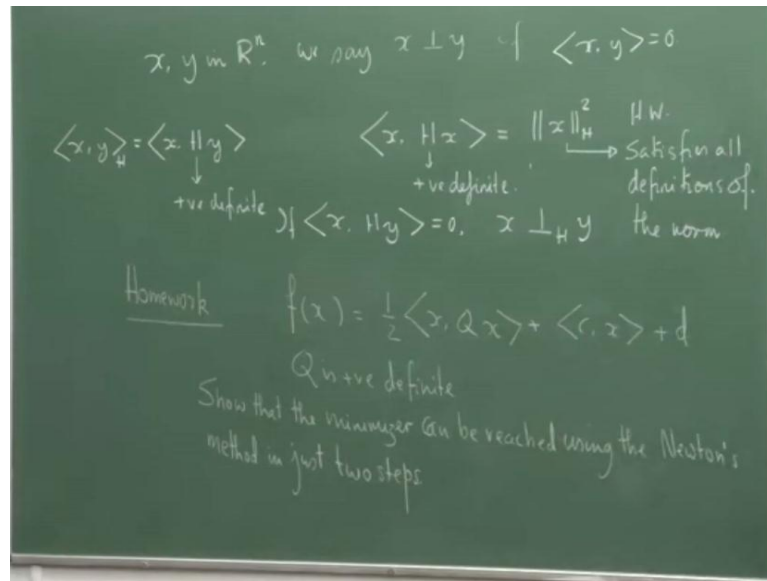 x, y in Rⁿ. we say x ⊥ y if <x, y> = 0.
<x, y>_H = <x. Hy>
↓
+ve definite
<x. Hx> = ||x||²_H
↓
+ve definite.
H W.
→ Satisfies all
definitions of.
the norm
If <x. Hy> = 0. x ⊥_H y
Homework
f(x) = 1/2 <x, Qx> + <c, x> + d
Q is +ve definite
Show that the minimizer can be reached using the Newton's
method in just two steps